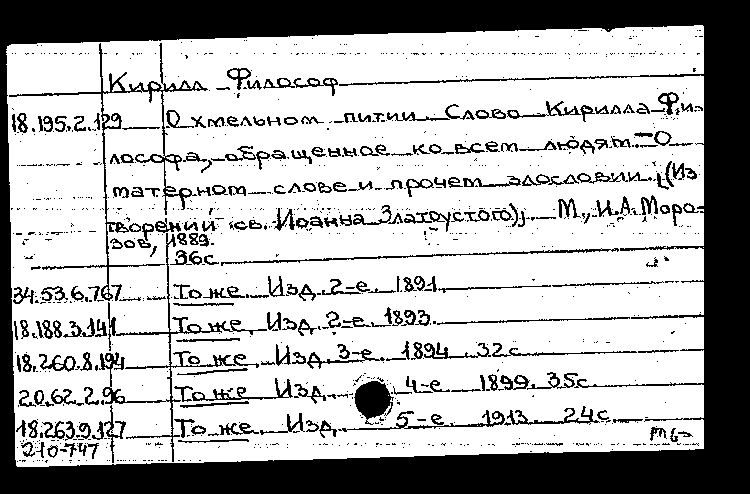 Кирилл Философ
18.195.2.129 О хмельном питии. Слово Кирилла Фи-
лософа, обращенное ко всем людям. – О
матерном слове и прочем злословии. [(Из
творений св. Иоанна Златоустого)]. М., И.А. Моро-
зов, 1889.
36с.
34.53.6.767 То же. Изд. 2-е. 1891.
18.188.3.141 То же. Изд. 2-е. 1893.
18.260.8.194 То же. Изд. 3-е. 1894. 32с.
20.62.2.96 То же Изд. 4-е 1899. 35с.
18.263.9.127 То же. Изд. 5-е. 1913. 24с.
210-747